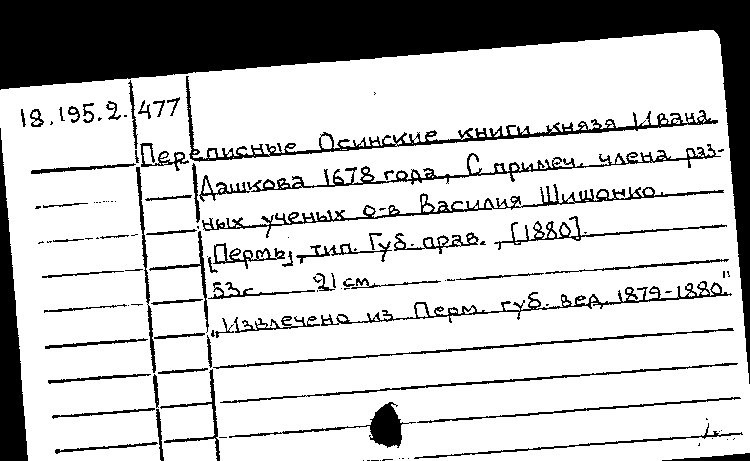 18.195.2. 477
Переписные Осинские книги князя Ивана
Дашкова 1678 года, С примеч. члена раз-
ных ученых о-в Василия Шишонко.
[Пермь], тип. Губ. прав., [1880].
53 с. 21 см.
„Извлечено из Перм. губ. вед. 1879-1880"